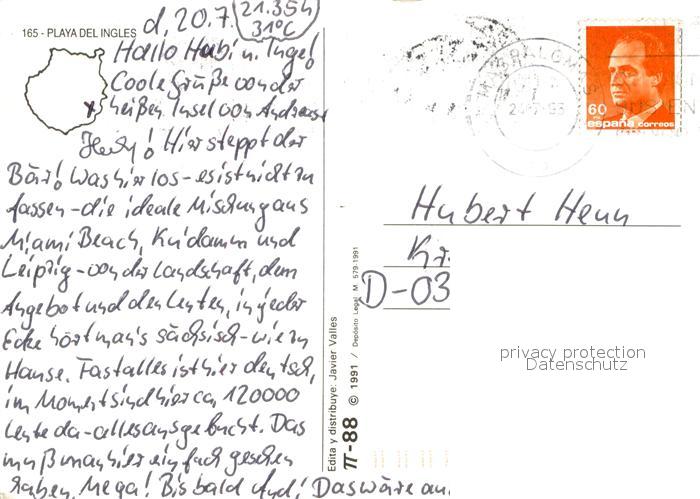 165 - PLAYA DEL INGLES
d. 20.7.
21.35h
31°C
Hallo Hubi u. Inge!
Coole Grüße von der
heißen Insel von Andreas +
Heidy! Hier steppt der
Bär! Was hier los - es ist nicht zu
fassen - die ideale Mischung aus
Miami Beach, Ku'damm und
Leipzig - von der Landschaft, dem
Angebot und den Leuten, in jeder
Ecke hört man's sächsisch - wie zu
Hause. Fast alles ist hier deutsch,
im Moment sind hier ca. 120000
Leute da - alles ausgebucht. Das
muß man hier einfach gesehen
haben. Mega! Bis bald Das wäre
Edita y distribuye: Javier Valles
π-88 © 1991 / Depósito Legal M. 579-1991
60
españa correos
Hubert Henn
Kr.
D-03
privacy protection
Datenschutz